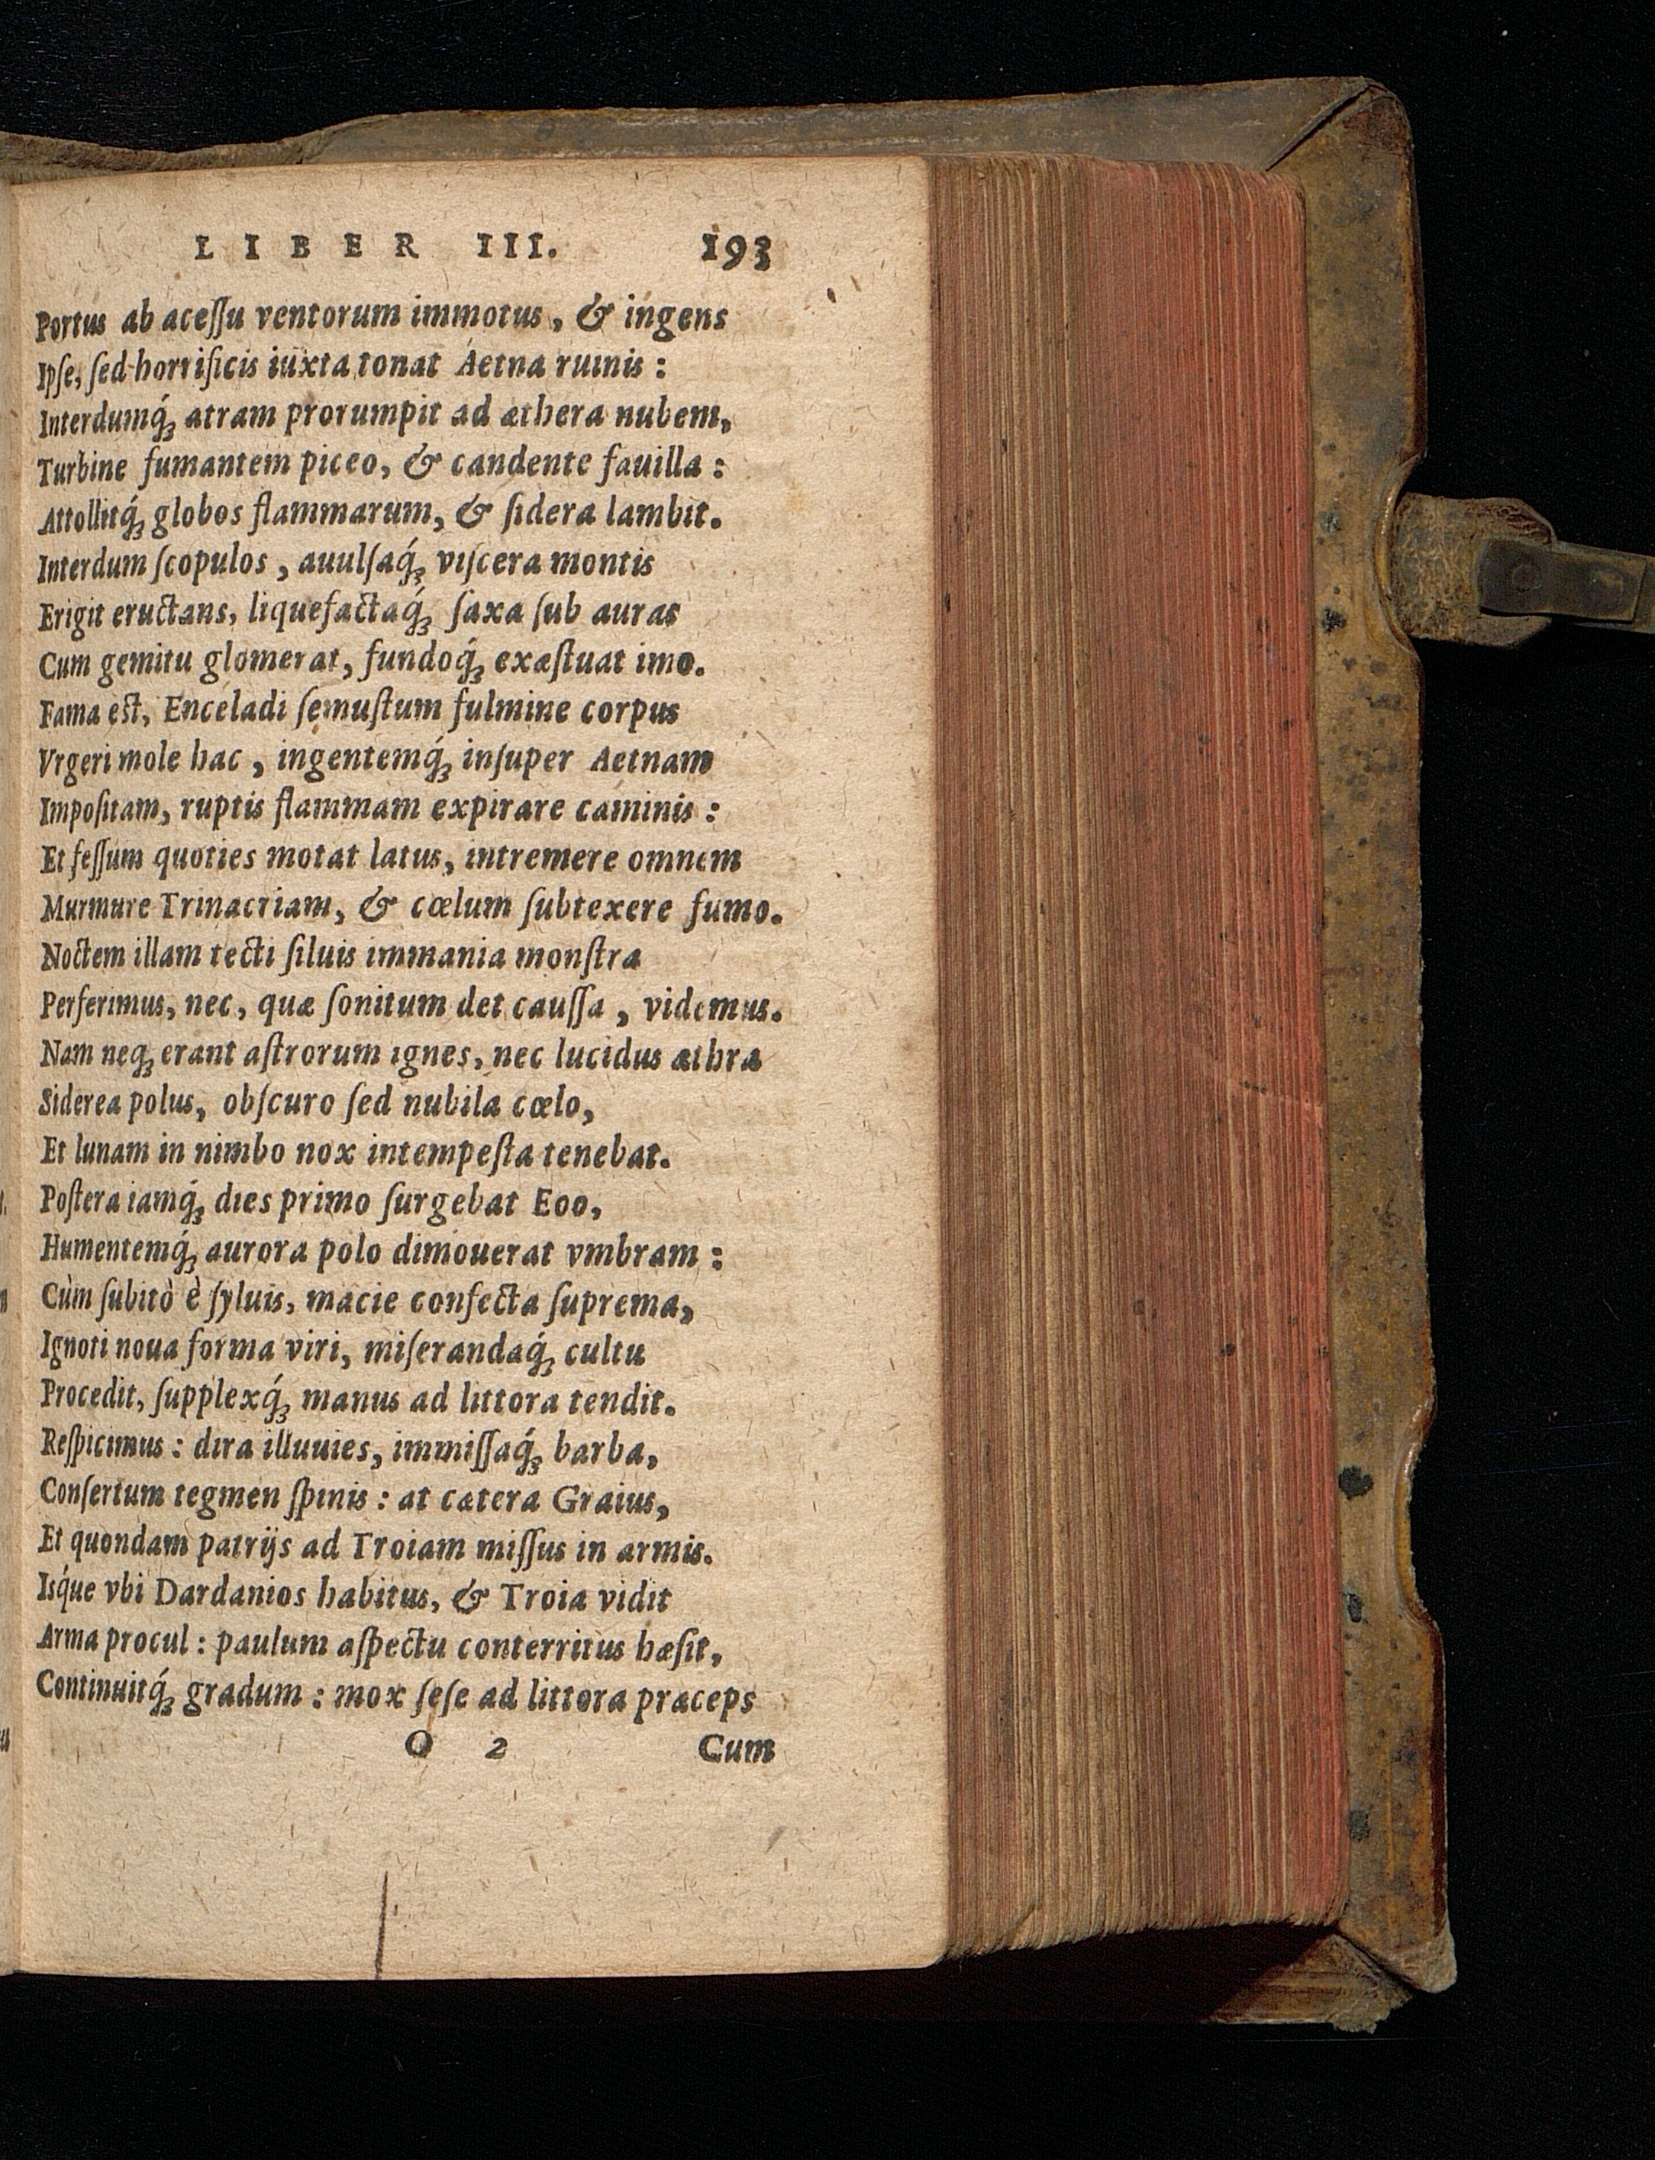 LIBER III. 193
Portus ab acessu ventorum immotus, & ingens
Ipse, sed horrificis iuxta tonat Aetna ruinis:
Interdumq́; atram prorumpit ad æthera nubem,
Turbine fumantem piceo, & candente fauilla:
Attollitq́; globos flammarum, & sidera lambit.
Interdum scopulos, auulsaq́; viscera montis
Erigit eructans, liquefactaq́; saxa sub auras
Cum gemitu glomerat, fundoq́; exæstuat imo.
Fama est, Enceladi semustum fulmine corpus
Vrgeri mole hac, ingentemq́; insuper Aetnam
Impositam, ruptis flammam expirare caminis:
Et fessum quoties motat latus, intremere omnem
Murmure Trinacriam, & cœlum subtexere fumo.
Noctem illam tecti siluis immania monstra
Perferimus, nec, quæ sonitum det caussa, videmus.
Nam neq; erant astrorum ignes, nec lucidus æthra
Siderea polus, obscuro sed nubila cœlo,
Et lunam in nimbo nox intempesta tenebat.
Postera iamq́; dies primo surgebat Eoo,
Humentemq́; aurora polo dimouerat vmbram:
Cùm subitò è syluis, macie confecta suprema,
Ignoti noua forma viri, miserandaq́; cultu
Procedit, supplexq́; manus ad littora tendit.
Respicimus: dira illuuies, immissaq́; barba,
Consertum tegmen spinis: at cætera Graius,
Et quondam patrijs ad Troiam missus in armis.
Isq́ue vbi Dardanios habitus, & Troia vidit
Arma procul: paulum aspectu conterritus hæsit,
Continuitq́; gradum: mox sese ad littora præceps
O 2 Cum